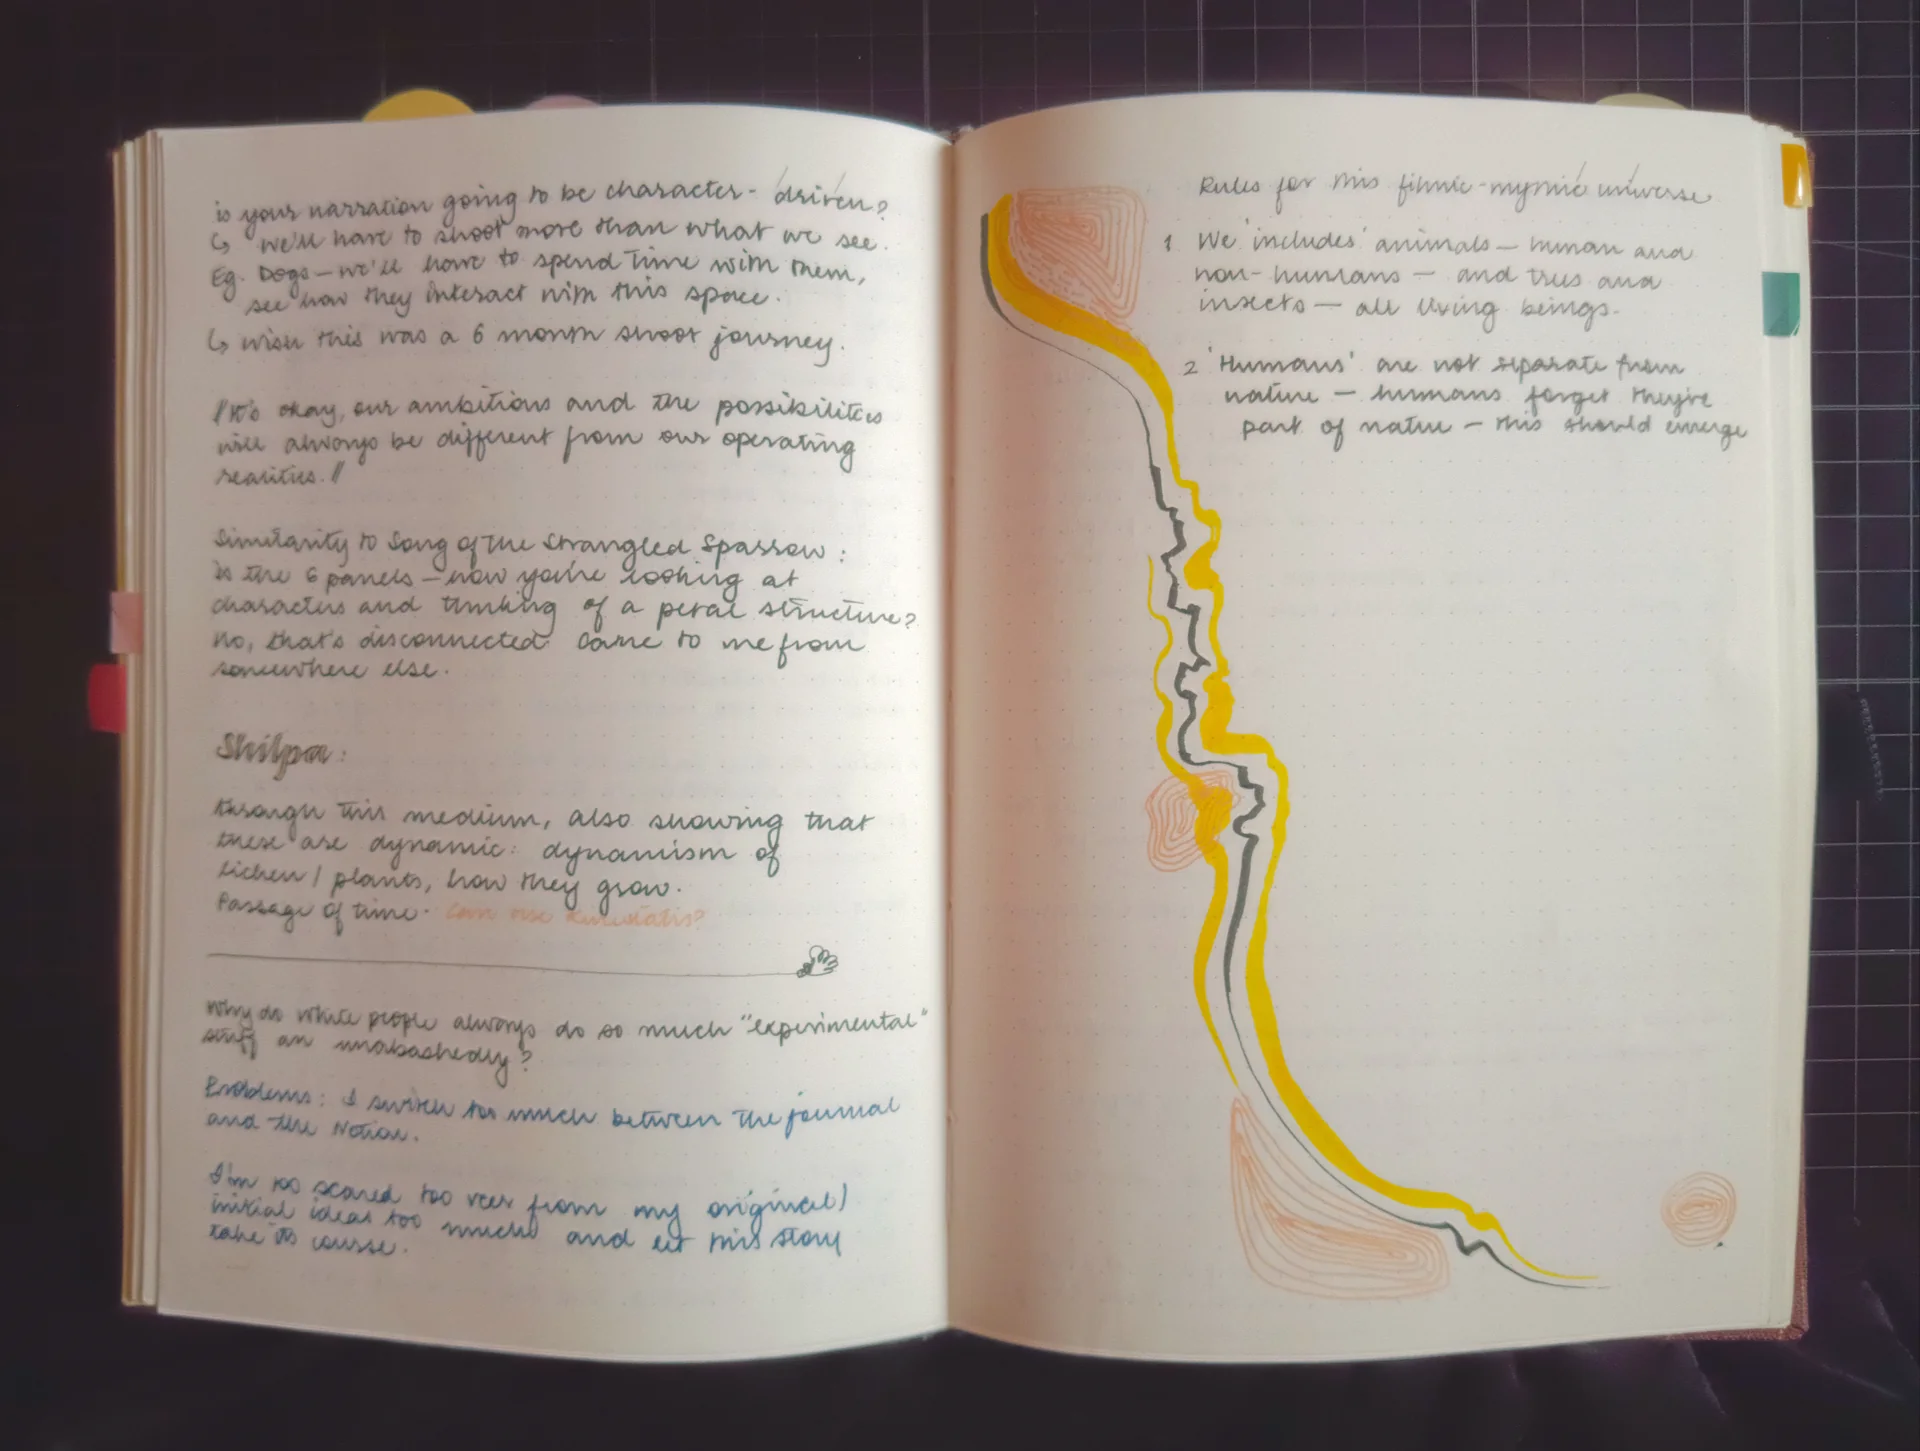 is your narration going to be character-'driven'?
↳ we'll have to shoot more than what we see.
Eg. Dogs — we'll have to spend time with them,
see how they interact with this space.
↳ wish this was a 6 month shoot journey.
// It's okay, our ambitions and the possibilities
will always be different from our operating
realities. //
Similarity to Song of the Strangled Sparrow :
is the 6 panels — now you're looking at
characters and thinking of a petal structure?
No, that's disconnected. Came to me from
somewhere else.
Shilpa :
through this medium, also showing that
these are dynamic : dynamism of
lichen / plants, how they grow.
Passage of time. Can use
Why do white people always do so much "experimental"
stuff so unabashedly?
Problems : I switch too much between the journal
and the Notion.
I'm so scared too veer from my original /
initial ideas too much and let this story
take its course.
Rules for this filmic-mythic universe
1. 'We' includes animals — human and
non-humans — and trees and
insects — all living beings.
2 'Humans' are not separate from
nature — humans forget they're
part of nature — this should emerge